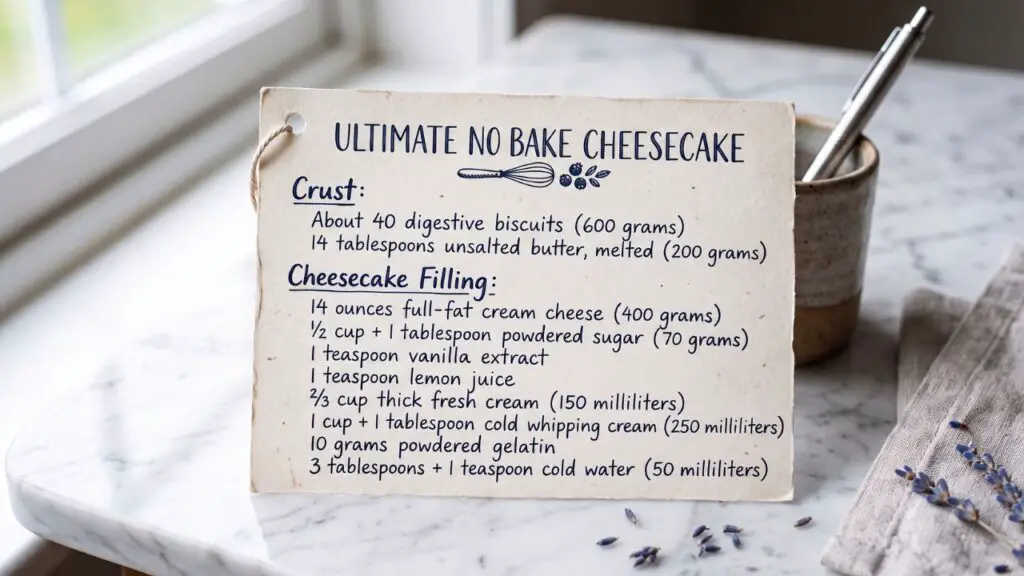 ULTIMATE NO BAKE CHEESECAKE
Crust:
About 40 digestive biscuits (600 grams)
14 tablespoons unsalted butter, melted (200 grams)
Cheesecake Filling:
14 ounces full-fat cream cheese (400 grams)
½ cup + 1 tablespoon powdered sugar (70 grams)
1 teaspoon vanilla extract
1 teaspoon lemon juice
⅔ cup thick fresh cream (150 milliliters)
1 cup + 1 tablespoon cold whipping cream (250 milliliters)
10 grams powdered gelatin
3 tablespoons + 1 teaspoon cold water (50 milliliters)